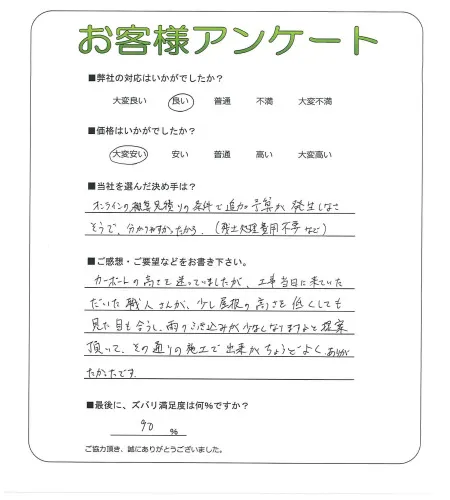 お客様アンケート
■弊社の対応はいかがでしたか?
大変良い 良い 普通 不満 大変不満
■価格はいかがでしたか?
大変安い 安い 普通 高い 大変高い
■当社を選んだ決め手は?
オンラインの概算見積りの条件で追加予算が発生しなさ
そうで、分かりやすかったから。(残土処理費用不要など)
■ご感想・ご要望などをお書き下さい。
カーポートの高さで迷っていましたが、工事当日に来ていた
だいた職人さんが、少し屋根の高さを低くしても
見た目も合うし、雨のふき込みが少なくなりますよと提案
頂いて、その通りの施工で出来がちょうどよく、ありが
たかったです。
■最後に、ズバリ満足度は何%ですか?
90 %
ご協力頂き、誠にありがとうございました。